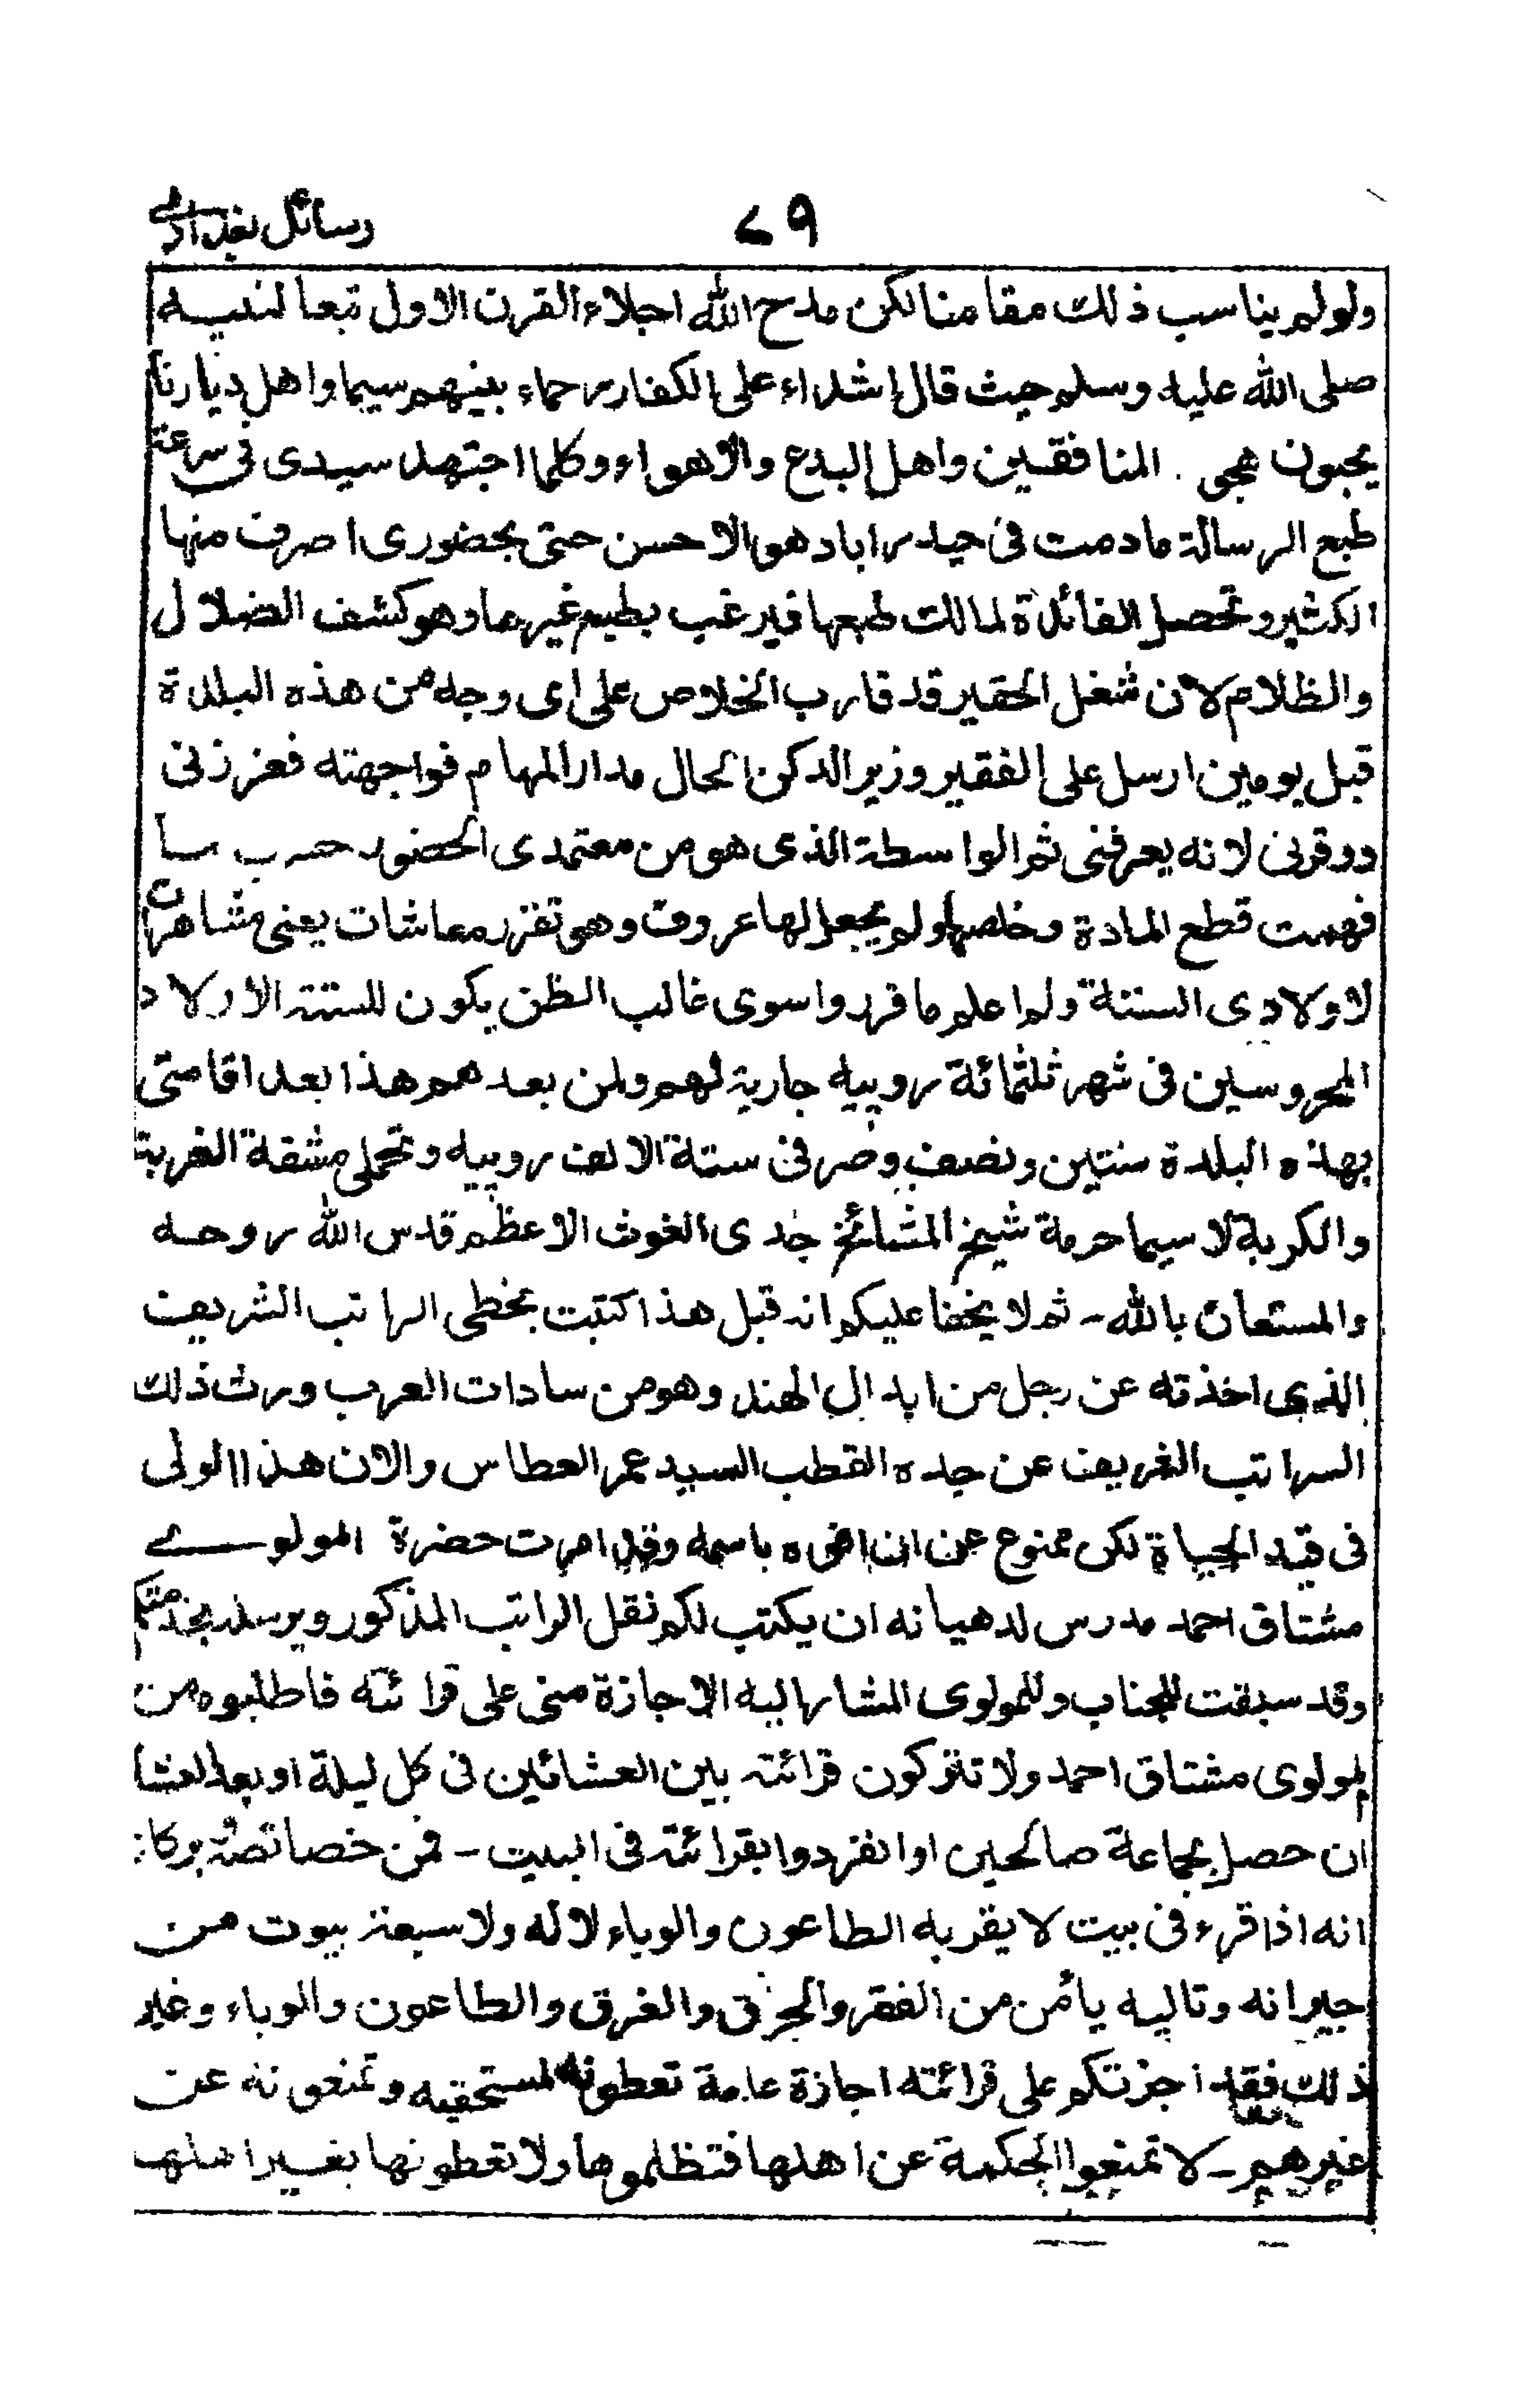 رسائل بغدادی
٧٩
ولو لم يناسب ذلك مقامنا لكن مدح الله اجلاء القرن الاول تبعا لنبيه
صلى الله عليه وسلم حيث قال اشداء على الكفار رحماء بينهم سيما واهل ديارنا
يحبون هجى المنافقين واهل البدع والاهواء وكلما اجتهد سيدى فى سرعة
طبع الرسالة مادمت فى حيدراباد هو الاحسن حتى بحضورى اصرف منها
الكثير وتحصل الفائدة لمالك طبعها فيرغب بطبع غيرها وهو كشف الضلال
والظلام لان شغل الحقير قد قارب الخلاص على اى وجه من هذه البلدة
قبل يومين ارسل على الفقير وزير الدكن الحال مدار المهام فواجهته فعززنى
ووقرنى لانه يعرفنى ثم الواسطة الذى هو من معتمدى الحضور
فهمت قطع المادة وخلصها ولم يجعل لها عروق وهو تقرر معاشات يعنى مشاهرات
لاولادى الستة ولم اعلم ما قرروا سوى غالب الظن يكون للستة الاولاد
المحروسين فى شهر ثلثمائة روپيه جارية لهم ولمن بعدهم هذا بعد اقامتى
بهذه البلدة سنتين ونصف وصرفى ستة الالف روپيه وتحملى مشقة الغربة
والكربة لا سيما حرمة شيخ المشائخ جدى الغوث الاعظم قدس الله روحه
والمستعان بالله - ثم لا يخفا عليكم انه قبل هذا كتبت بخطى الراتب الشريف
الذى اخذته عن رجل من ابدال الهند وهو من سادات العرب ورث ذلك
الراتب الغريف عن جده القطب السيد عمر العطاس والان هذا الولى
فى قيد الحياة لكن ممنوع عن ان افوه باسمه وقد امرت حضرة المولوے
مشتاق احمد مدرس لدهيانه ان يكتب لكم نقل الراتب المذكور ويرسله بخدمتكم
وقد سبقت للجناب وللمولوى المشار اليه الاجازة منى على قرائته فاطلبوه من
المولوى مشتاق احمد ولا تتركون قرائته بين العشائين فى كل ليلة او بعد العشا
ان حصل بجماعة صالحين او انفردوا بقرائته فى البيت - فمن خصائصه
انه اذا قرء فى بيت لا يقربه الطاعون والوباء لا له ولا سبعة بيوت من
جيرانه وتاليه يأمن من الفقر والحرق والغرق والطاعون والوباء وغير
ذلك فقد اجزتكم على قرائته اجازة عامة تعطونه لمستحقيه وتمنعونه عن
غيرهم - لا تمنعوا الحكمة عن اهلها فتظلموها ولا تعطونها بغير اهلها